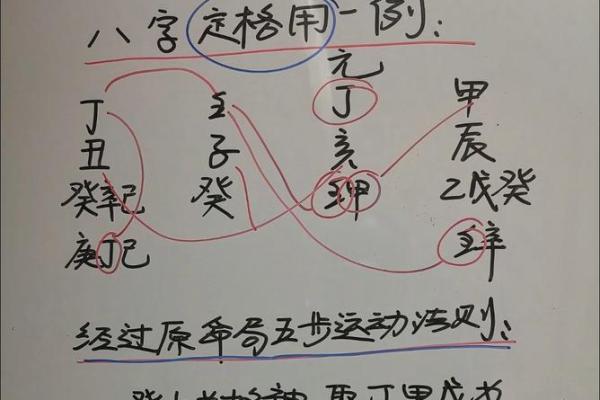 八字定格用一例：
元
丁 壬 丁 甲
丑 子 亥 辰
癸辛己 癸 壬甲 乙戊癸
庚丁己 壬辛
经过原命局五步运动法则：
取丁甲戊